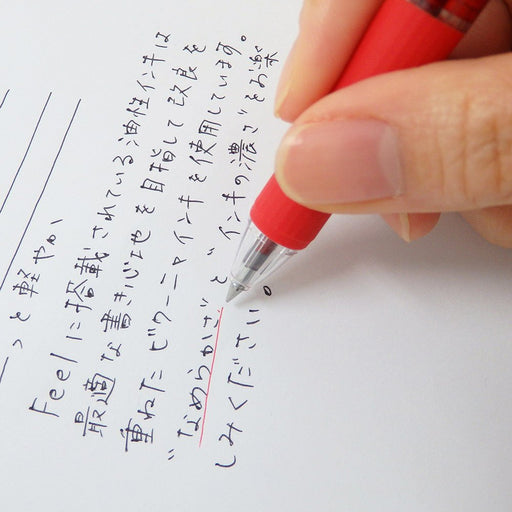 っと軽やか
Feelに搭載されている油性インキは
最適な書き心地を目指して改良を
重ねたビクーニャインキを使用しています。
"なめらかさ"と"インキの濃さ"をお楽
しみください。